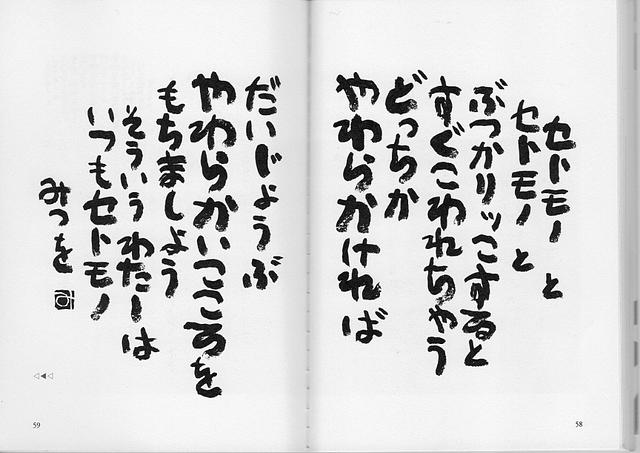 セトモノと
セトモノと
ぶつかりッこすると
すぐこわれちゃう
どっちか
やわらかければ
だいじょうぶ
やわらかいこころを
もちましょう
そういうわたしは
いつもセトモノ
みつを
58
59